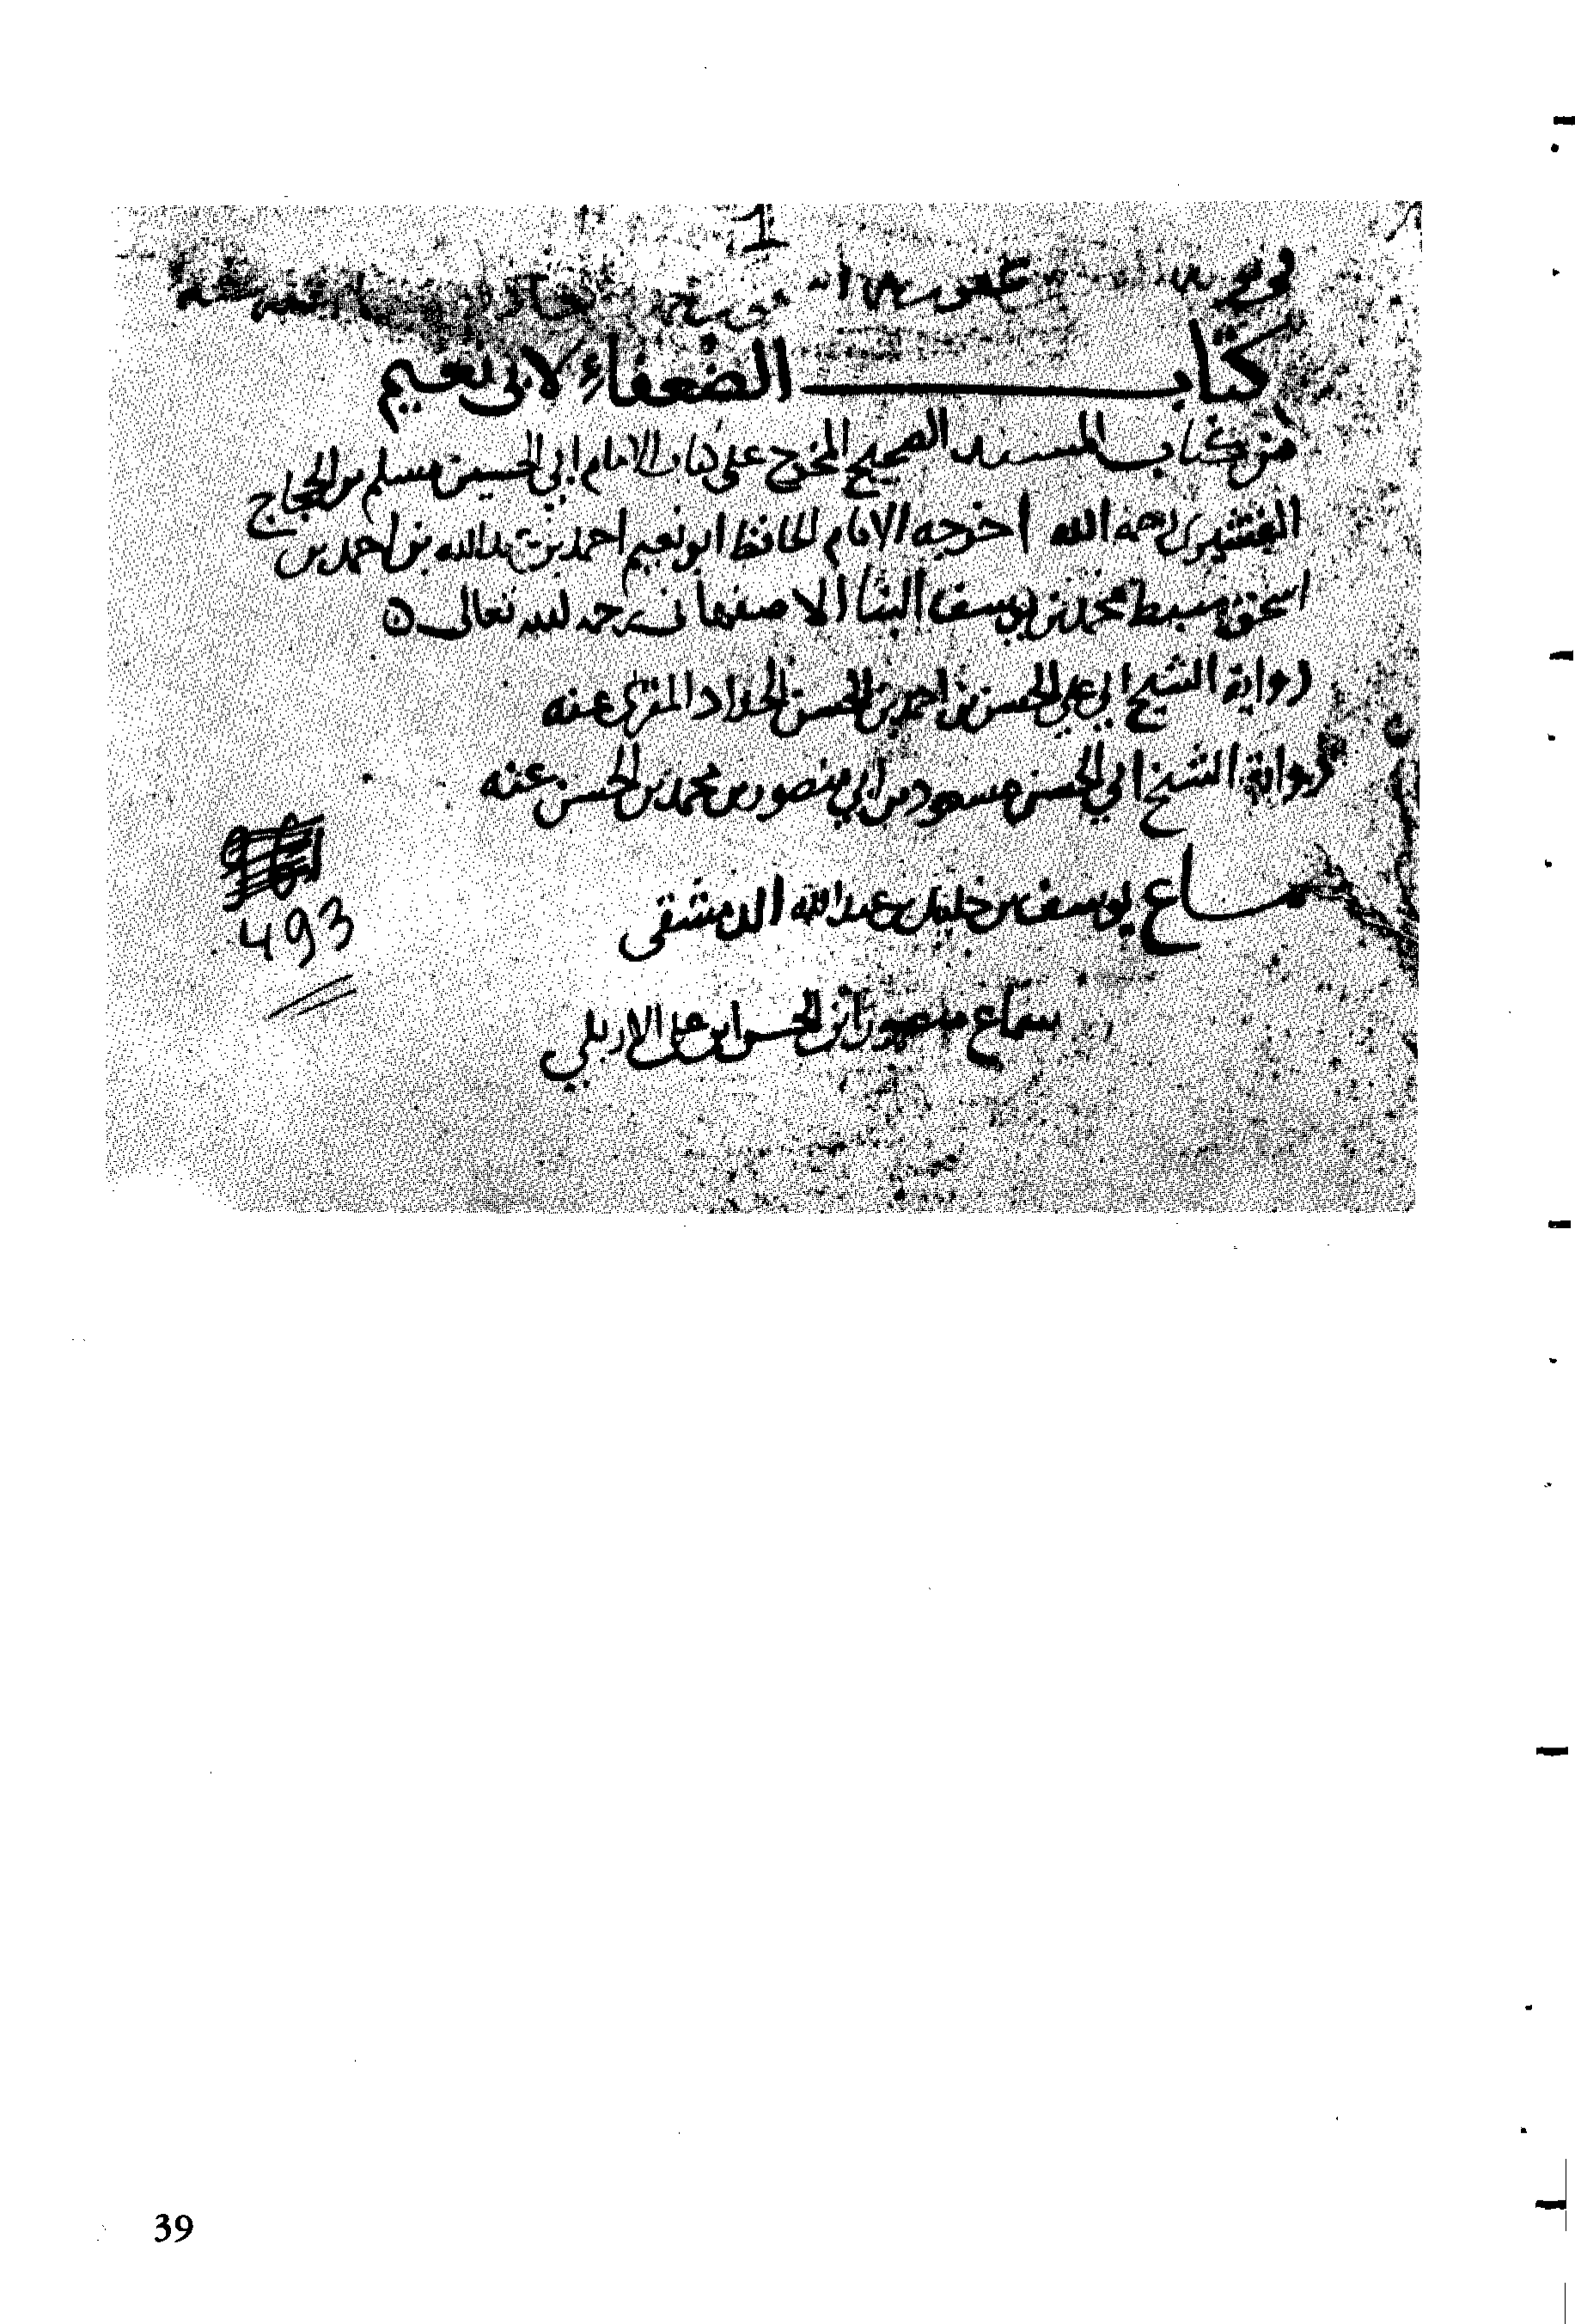 1
كتاب الضعفاء لابي نعيم
من كتاب المسند الصحيح المخرج على كتاب الامام ابي الحسين مسلم بن الحجاج
القشيري رحمه الله اخرجه الامام الحافظ ابو نعيم احمد بن عبد الله بن احمد بن
اسحق سبط محمد بن يوسف البنا الاصفهاني رحمه الله تعالى ٥
رواية الشيخ ابي علي الحسن بن احمد بن الحسن الحداد المقرئ عنه
رواية الشيخ ابي الحسن مسعود بن ابي منصور بن محمد بن الحسن عنه
سماع يوسف بن خليل بن عبد الله الدمشقى
493
سماع منصور ابن الحسن ابن علي الاربلي
39